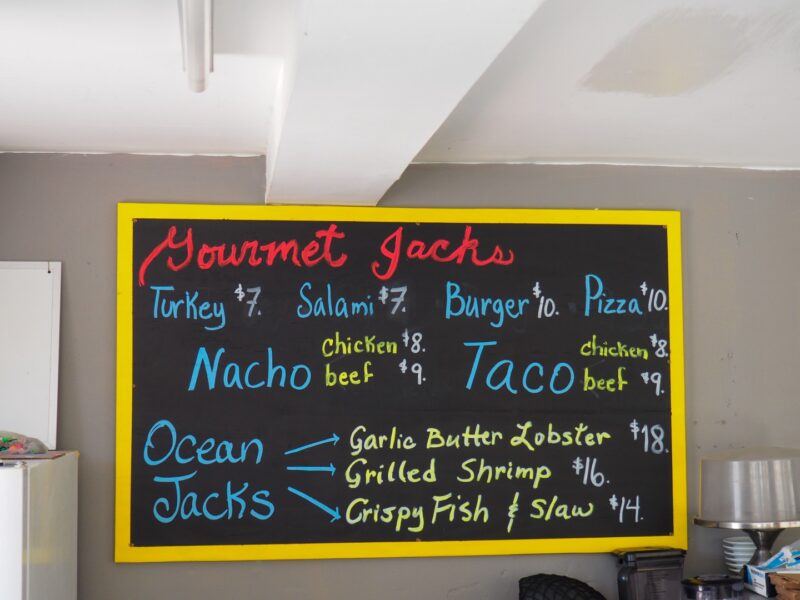 Gourmet Jacks
Turkey $7. Salami $7. Burger $10. Pizza $10.
Nacho chicken $8. beef $9.
Taco chicken $8. beef $9.
Ocean Jacks
Garlic Butter Lobster $18.
Grilled Shrimp $16.
Crispy Fish & Slaw $14.